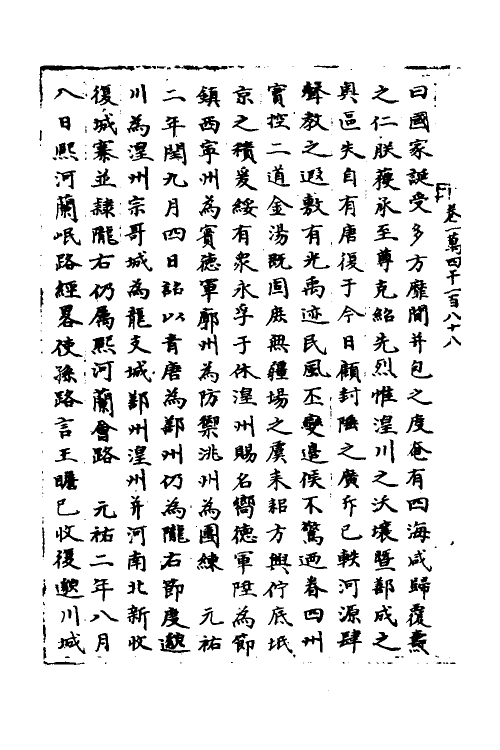 卷一萬四千一百八十八
曰國家誕受多方靡間并包之度奄有四海咸歸覆燾
之仁朕獲承至尊克紹先烈惟湟川之沃壤暨鄯成之
奧區失自有唐復于今日顧封陲之廣斥已軼河源肆
聲教之遐敷有光禹迹民風丕變邊候不驚迺眷四州
實控二道金湯既固庶無疆場之虞耒耜方興佇底坻
京之積爰綏有衆永孚于休湟州賜名嚮德軍陞為節
鎮西寧州為賓德軍廓州為防禦洮州為團練　元祐
二年閏九月四日詔以青唐為鄯州仍為隴右節度邈
川為湟州宗哥城為龍支城鄯州湟州并河南北新收
復城寨並隸隴右仍屬熙河蘭會路　元祐二年八月
八日熙河蘭岷路經畧使孫路言王瞻已收復邈川城